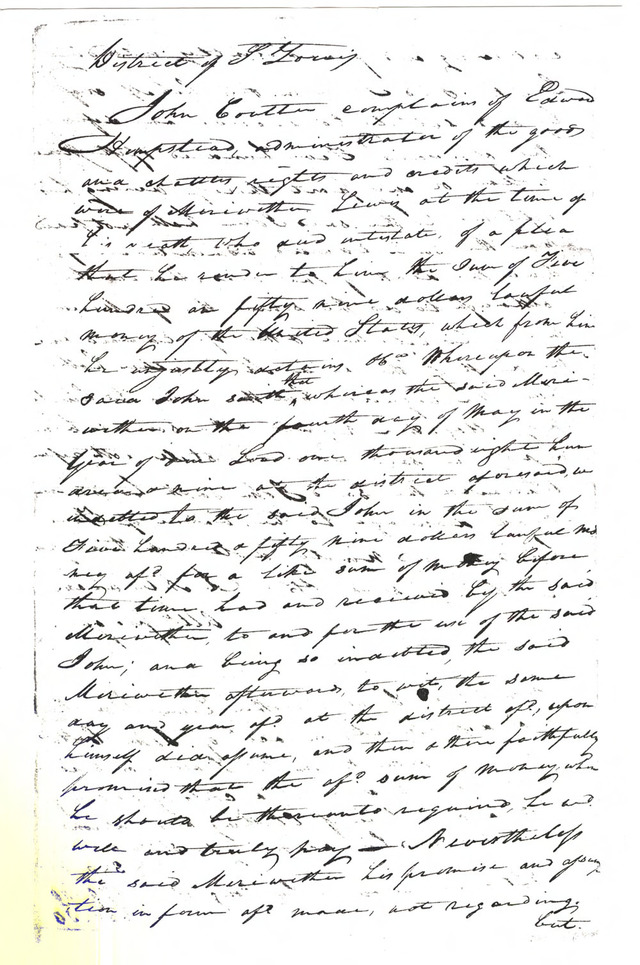 District of St. Louis
John Coulter complains of Edward
Hempstead, administrator of the goods
and chattles rights and credits which
were of Meriwether Lewis at the time of
his death who died intestate, of a plea
that he render to him the sum of Five
hundred an fifty nine dollars lawful
money of the United States, which from him
he unjustly detains. &c Whereupon the
said John saith, that whereas the said Meri-
wether on the fourth day of May in the
Year of our Lord one thousand eight hun
dred & nine at the district aforesaid
indebted to the said John in the sum of
Five hundred & fifty nine dollars lawful mo
ney afd. for a like sum of money before
that time had and received by the said
Meriwether, to and for the use of the said
John; and being so indebted, the said
Meriwether afterwards, to wit, the same
day and year afd. at the district afd., upon
himself did assume, and then & there faithfully
promised that the afd. sum of money, when
he should be thereunto required, he wd.
well and truly pay — Nevertheless
the said Meriwether his promise and assump
tion in form afd. made, not regarding,
but